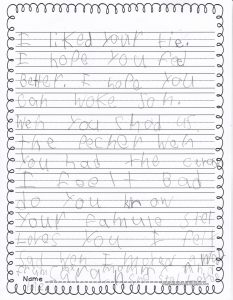 I liked your tie.
I hope you feel
Better. I hope you
can woke son.
Wen you shod us
the pecher wen
you had the
I feelt Bad
do you know
your famule still
Loves you I felt
sad wen I
Name